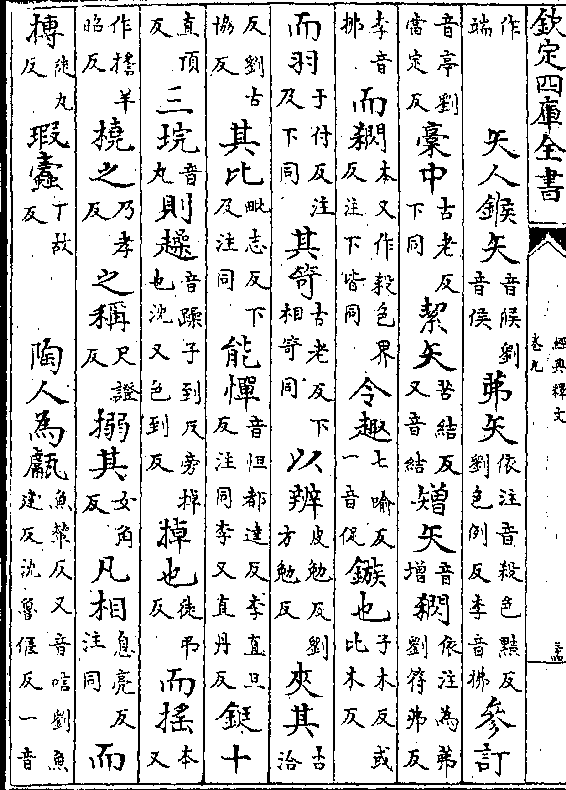 欽定四庫全書 經典釋文 卷九
作端 矢人鍭矢音候劉音侯 茀矢依注音殺色黠反劉色例反李音拂 參訂
音亭劉當定反 稾中古老反下同 絜矢苦結反又音結 矰矢音增 閷依注為茀劉符弗反
李音拂 而閷本又作殺色界反注下皆同 令趣七喻反一音促 鏃也子木反或比木反
而羽于付反注及下同 其笴古老反下相笴同 以辨皮勉反劉方勉反 夾其古洽
反劉古協反 其比毗志反下及注同 能憚音怛都達反李直旦反注同李又直丹反 鋌十
直頂反 三垸音丸 則趮音躁子到反旁掉也沈又色到反 掉也徒弔反 而搖本又
作㨱羊昭反 橈之乃孝反 之稱尺證反 搦其女角反 凡相息亮反注同 而
摶徒丸反 瑕蠹丁故反 陶人為甗魚輦反又音唁劉魚建反沈魯偃反一音